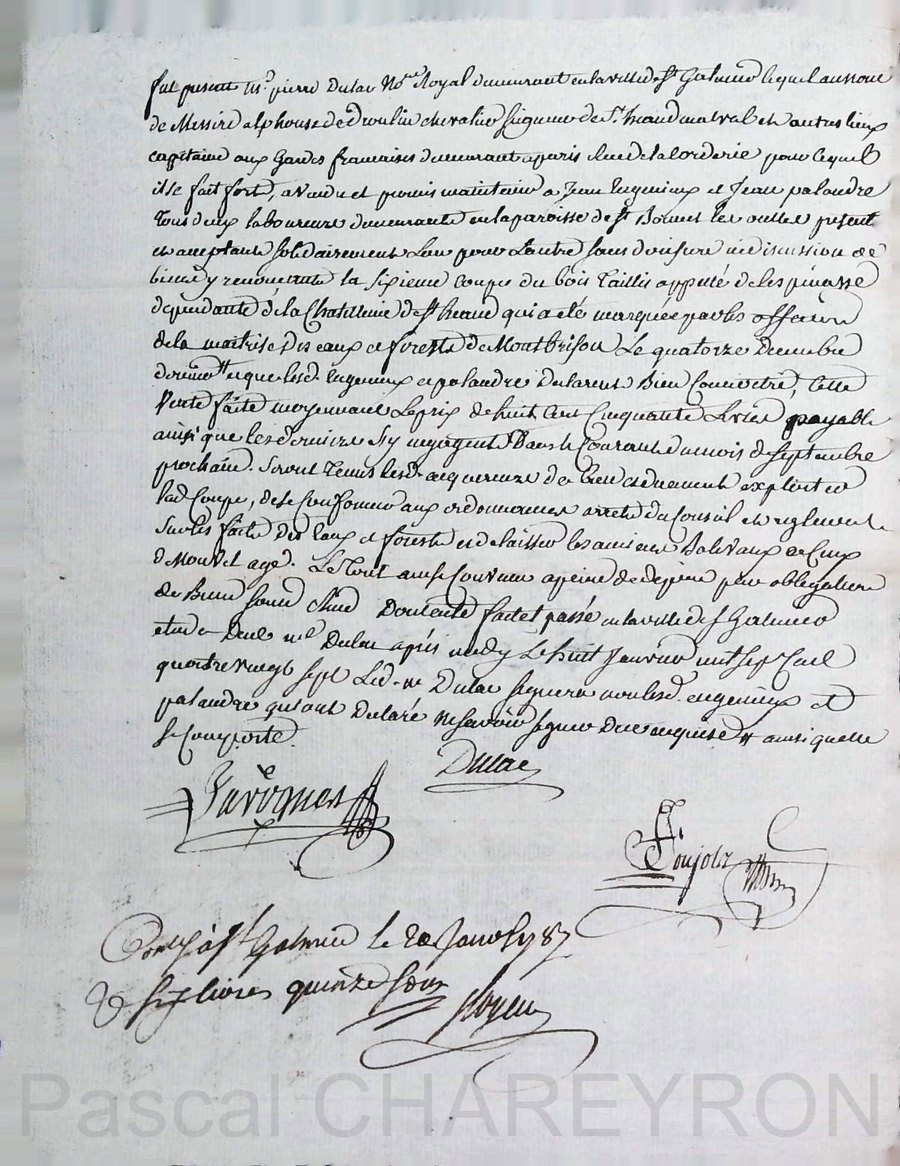 fut présent Me. pierre Dulac No.re Royal demeurant en la ville de St Galmier lequel au nom
de Messire alphonse de Droulin chevalier Seigneur de St. heand malval et autres lieux
capitaine aux Gardes françaises demeurant a paris de la corderie pour lequel
il se fait fort, a vendu et promis maintenir a Jean et Jean palandre
tous deux laboureurs demeurants en la paroisse de St Bonnet les oulles présent
et acceptants solidairement l'un pour l'autre sans division ni discussion de
biens y renonçants la sixieme coupe du bois taillis appellé de
dependante de la Chatellenie de St heand qui a été marquée par les officiers
de la maitrise des eaux et forests de Montbrison Le quatorze Decembre
dernier et que lesd. et palandre declarent Bien Connoitre, cette
Vente faite moyennant Le prix de huit cent Cinquante Livres payable
ainsi que les derniers s'y obligent Dans le Courant du mois de Septembre
prochain. Seront tenus lesd. acquereurs de bien et duement exploiter
lad. Coupe, de se Conformer aux ordonnances arrets du Conseil et reglements
sur les faits des Eaux et forests et de laisser les anciens Balivaux et Ceux
de l'age. Le tout ainsi Convenu a peine de depens par obligation
de Biens Soum. Clau. Dont acte fait et passé en la ville de St Galmier
etude Dud. me. Dulac après midy Le huit Janvier mil Sept Cent
quatre vingt sept Led. me Dulac signera non lesd. et
palandre qui ont Declaré ne savoir signer De ce enquis et ainsi quelle
se Comporte.
Dulac
Poujolz
à St Galmier le 20 Janv. 1787
Six livres quinze sous